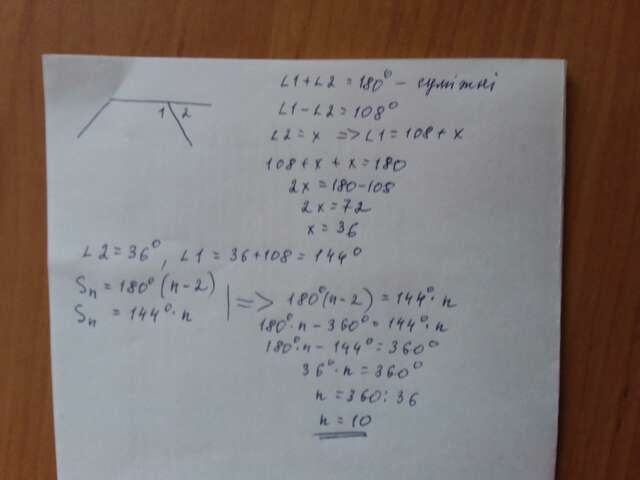 ∠1+∠2=180° – суміжні
∠1–∠2=108°
1 2
∠2=x => ∠1=108+x
108+x+x=180
2x=180-108
2x=72
x=36
∠2=36°, ∠1=36+108=144°
Sn=180°(n-2)
Sn=144°·n
=> 180°(n-2)=144°·n
180°·n-360°=144°·n
180°·n-144°=360°
36°·n=360°
n=360:36
n=10